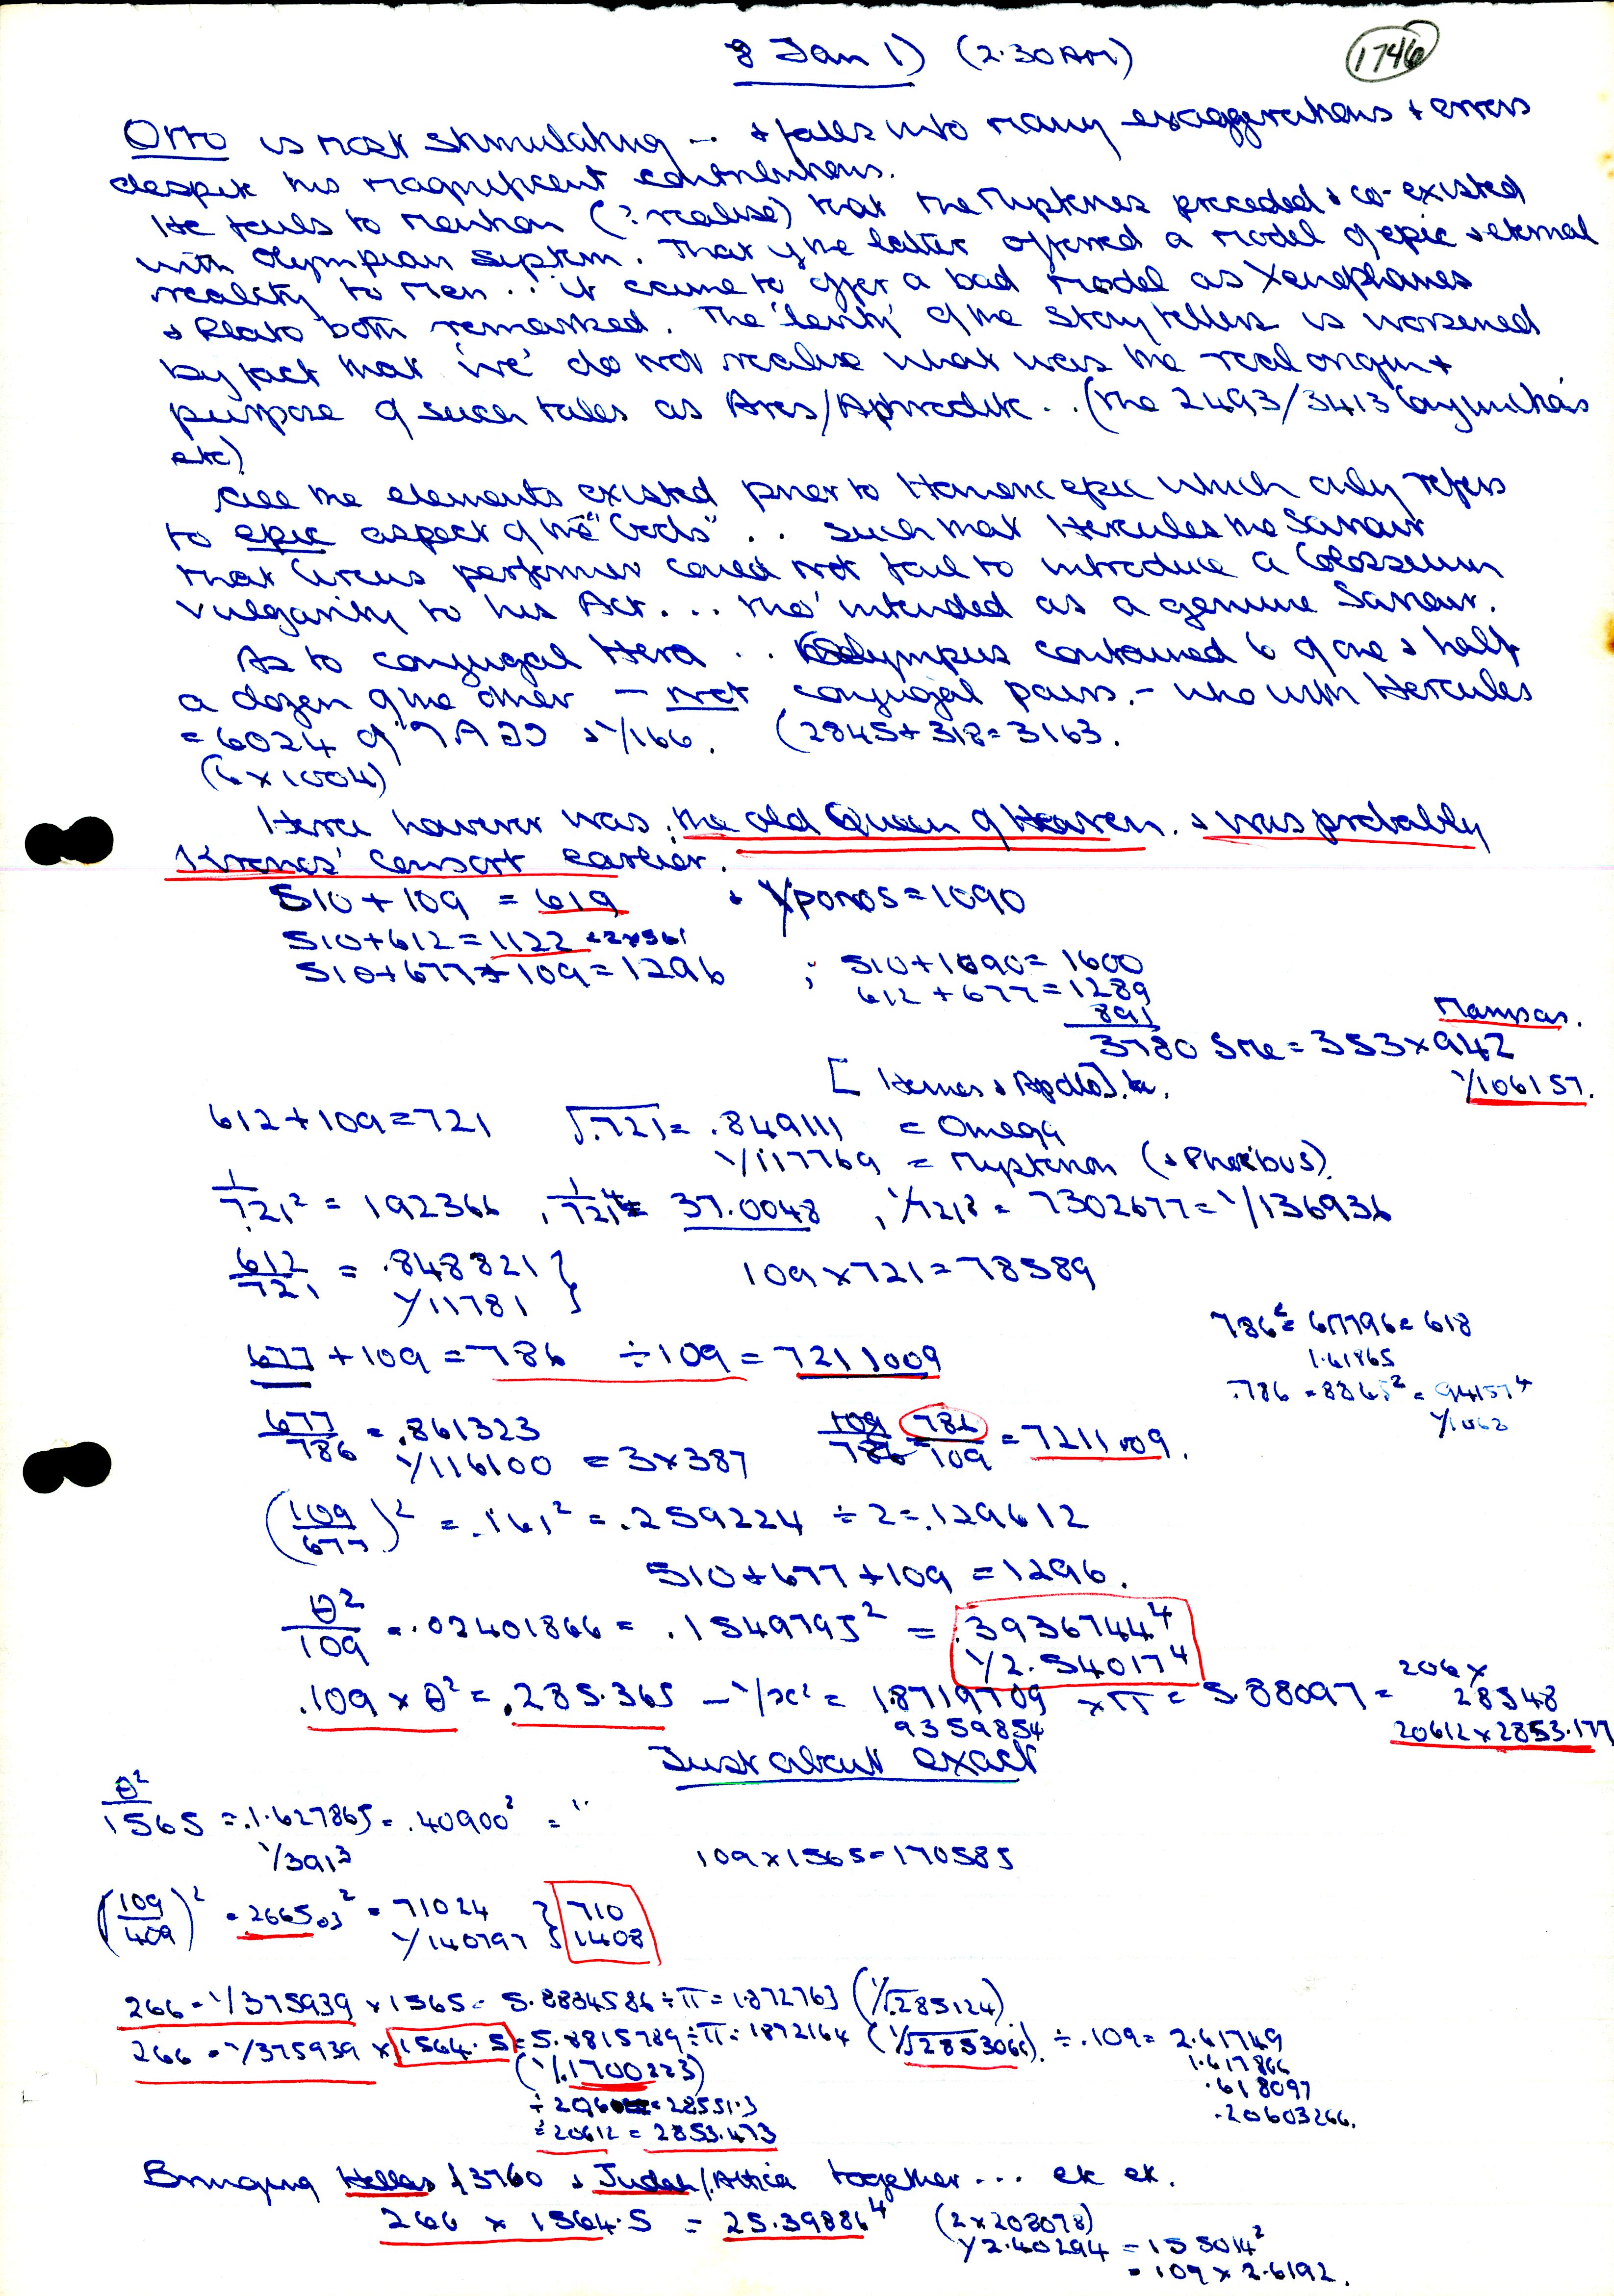 8 Jan 1) (2.30AM)
1746
Otto is most stimulating -- + falls into many exaggerations + errors
despite his magnificent contributions.
He fails to mention (? realise) that the Mysteries preceded & co-existed
with Olympian system. That if the latter offered a model of epic & eternal
reality to men .. it came to offer a bad model as Xenophanes
& Plato both remarked. The 'levity' of the story tellers is worsened
by fact that 'we' do not realise what was the real origin +
purpose of such tales as Ares/Aphrodite . . (the 2493/3413
etc)
All the elements existed prior to Homeric epic which only refers
to epic aspect of the "Gods" . . such that Hercules the Saviour
that Circus performer could not fail to introduce a Colosseum
vulgarity to his Act . . . tho' intended as a genuine Saviour.
As to conjugal Hera . . Olympus contained 6 of one & half
a dozen of the other — not conjugal pairs. - who with Hercules
= 6024 of & 1/166. (2845 + 318 = 3163.
(6 x 1004)
Hera however was the old Queen of Heaven. & was probably
Kronos' consort earlier.
510 + 109 = 619 + Χρονος = 1090
510 + 612 = 1122 = 2 x 561
510 + 677 + 109 = 1296 ; 510 + 1090 = 1600
612 + 677 = 1289
891
3780 Sme = 353 x 942
Mampsas.
1/106157.
[Hermes & Apollo]
612 + 109 = 721 √.721 = .849111 = Omega
1/117769 = Mysterion (& Phoebus).
1/721² = 192366 , 1/721⁴ = 37.0048 , 1/721⁸ = 7302677 = 1/136936
612/721 = .848821 } 109 x 721 = 78589
1/11781
786² = 617796 = 618
1.61865
.786 = 8865² = 94157⁴
1/1062
677 + 109 = 786 ÷ 109 = 7211009
677/786 = .861323 109/786 = 786/109 = 7211009.
1/116100 = 3 x 387
(109/677)² = .161² = .259224 ÷ 2 = .129612
510 + 677 + 109 = 1296.
θ²/109 = .02401866 = .1549795² = .3936744⁴
1/2.54017⁴
.109 x θ² = .285.365 - 1/x² = 1.8719709 x π = 5.88097 = 206 x 28548
9359854 20612 x 2853.177
Just about exact
θ²/1565 = .1.627865 = .40900² = "
1/391³ 109 x 1565 = 170585
(109/409)² = .266503² = 71024 } 710
1/140797 } 1408
266 = 1/375939 x 1565 = 5.8834586 ÷ π = 1.872763 (1/√.285124)
266 = 1/375939 x 1564.5 = 5.8815789 ÷ π = 1872164 (1/√2853066) ÷ .109 = 2.61749
(1/.1700223) 1.617866
÷ 206 = 28551.3 .618097
÷ 20612 = 2853.473 .20603266.
Bringing Hellas /3760 & Judah/Attica together . . . etc etc.
266 x 1564.5 = 25.39886⁴ (2 x 208078)
1/2.40294 = 155014²
= 109 x 2.6192.